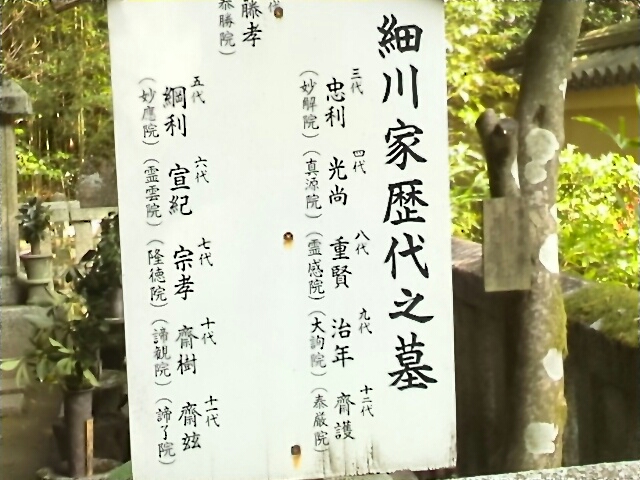 細川家歴代之墓
三代 忠利 (妙解院)
四代 光尚 (真源院)
八代 重賢 (霊感院)
九代 治年 (大詢院)
十二代 齊護 (泰厳院)
代 藤孝 (泰勝院)
五代 綱利 (妙應院)
六代 宣紀 (霊雲院)
七代 宗孝 (隆徳院)
十代 齊樹 (諦観院)
十一代 齊玆 (諦了院)